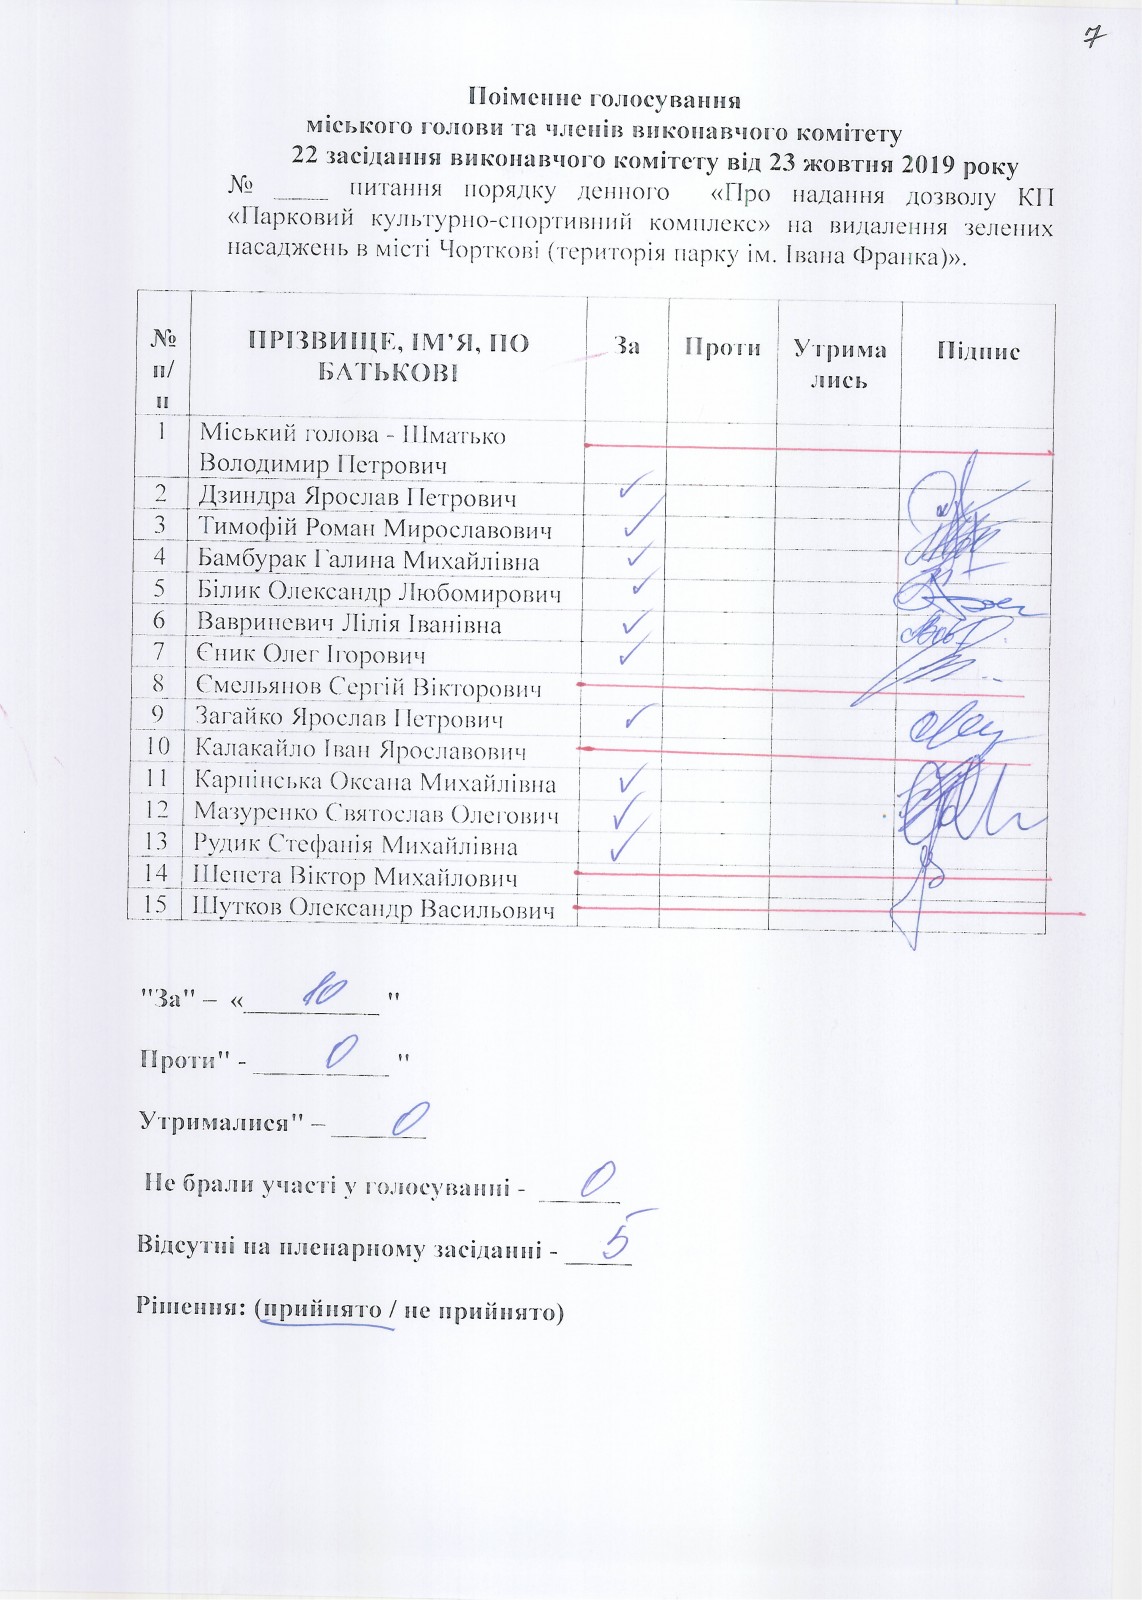 7
Поіменне голосування
міського голови та членів виконавчого комітету
22 засідання виконавчого комітету від 23 жовтня 2019 року
№ ____ питання порядку денного «Про надання дозволу КП
«Парковий культурно-спортивний комплекс» на видалення зелених
насаджень в місті Чорткові (територія парку ім. Івана Франка)».
№ п/п ПРІЗВИЩЕ, ІМ’Я, ПО БАТЬКОВІ За Проти Утрима лись Підпис
1 Міський голова - Шматько
Володимир Петрович
2 Дзиндра Ярослав Петрович ✓
3 Тимофій Роман Мирославович ✓
4 Бамбурак Галина Михайлівна ✓
5 Білик Олександр Любомирович ✓
6 Вавриневич Лілія Іванівна ✓
7 Єник Олег Ігорович ✓
8 Ємельянов Сергій Вікторович
9 Загайко Ярослав Петрович ✓
10 Калакайло Іван Ярославович
11 Карпінська Оксана Михайлівна ✓
12 Мазуренко Святослав Олегович ✓
13 Рудик Стефанія Михайлівна ✓
14 Шепета Віктор Михайлович
15 Шутков Олександр Васильович
"За" – «__________ 10 "
Проти" - __________ 0 "
Утрималися" – _______ 0
Не брали участі у голосуванні - ______ 0
Відсутні на пленарному засіданні - _____ 5
Рішення: (прийнято / не прийнято)